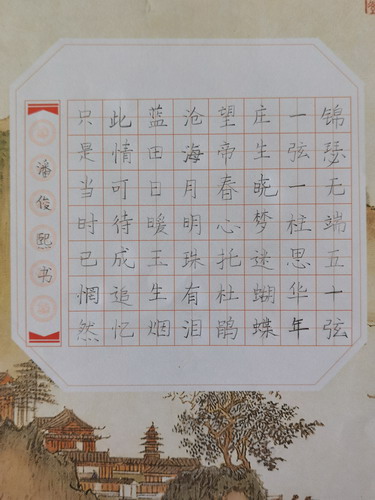 锦瑟无端五十弦
一弦一柱思华年
庄生晓梦迷蝴蝶
望帝春心托杜鹃
沧海月明珠有泪
蓝田日暖玉生烟
此情可待成追忆
只是当时已惘然
潘俊熙书